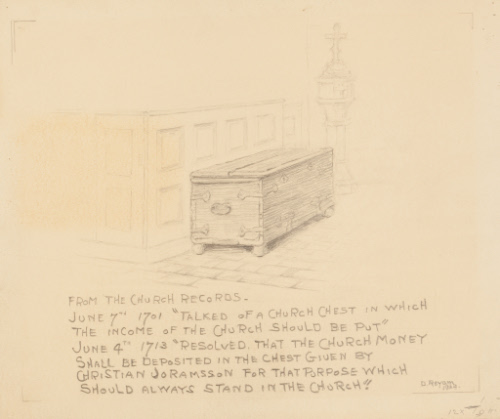 FROM THE CHURCH RECORDS.
JUNE 7TH 1701 "TALKED OF A CHURCH CHEST IN WHICH
THE INCOME OF THE CHURCH SHOULD BE PUT"
JUNE 4TH 1713 "RESOLVED. THAT THE CHURCH MONEY
SHALL BE DEPOSITED IN THE CHEST GIVEN BY
CHRISTIAN JORAMSSON FOR THAT PURPOSE WHICH
SHOULD ALWAYS STAND IN THE CHURCH."